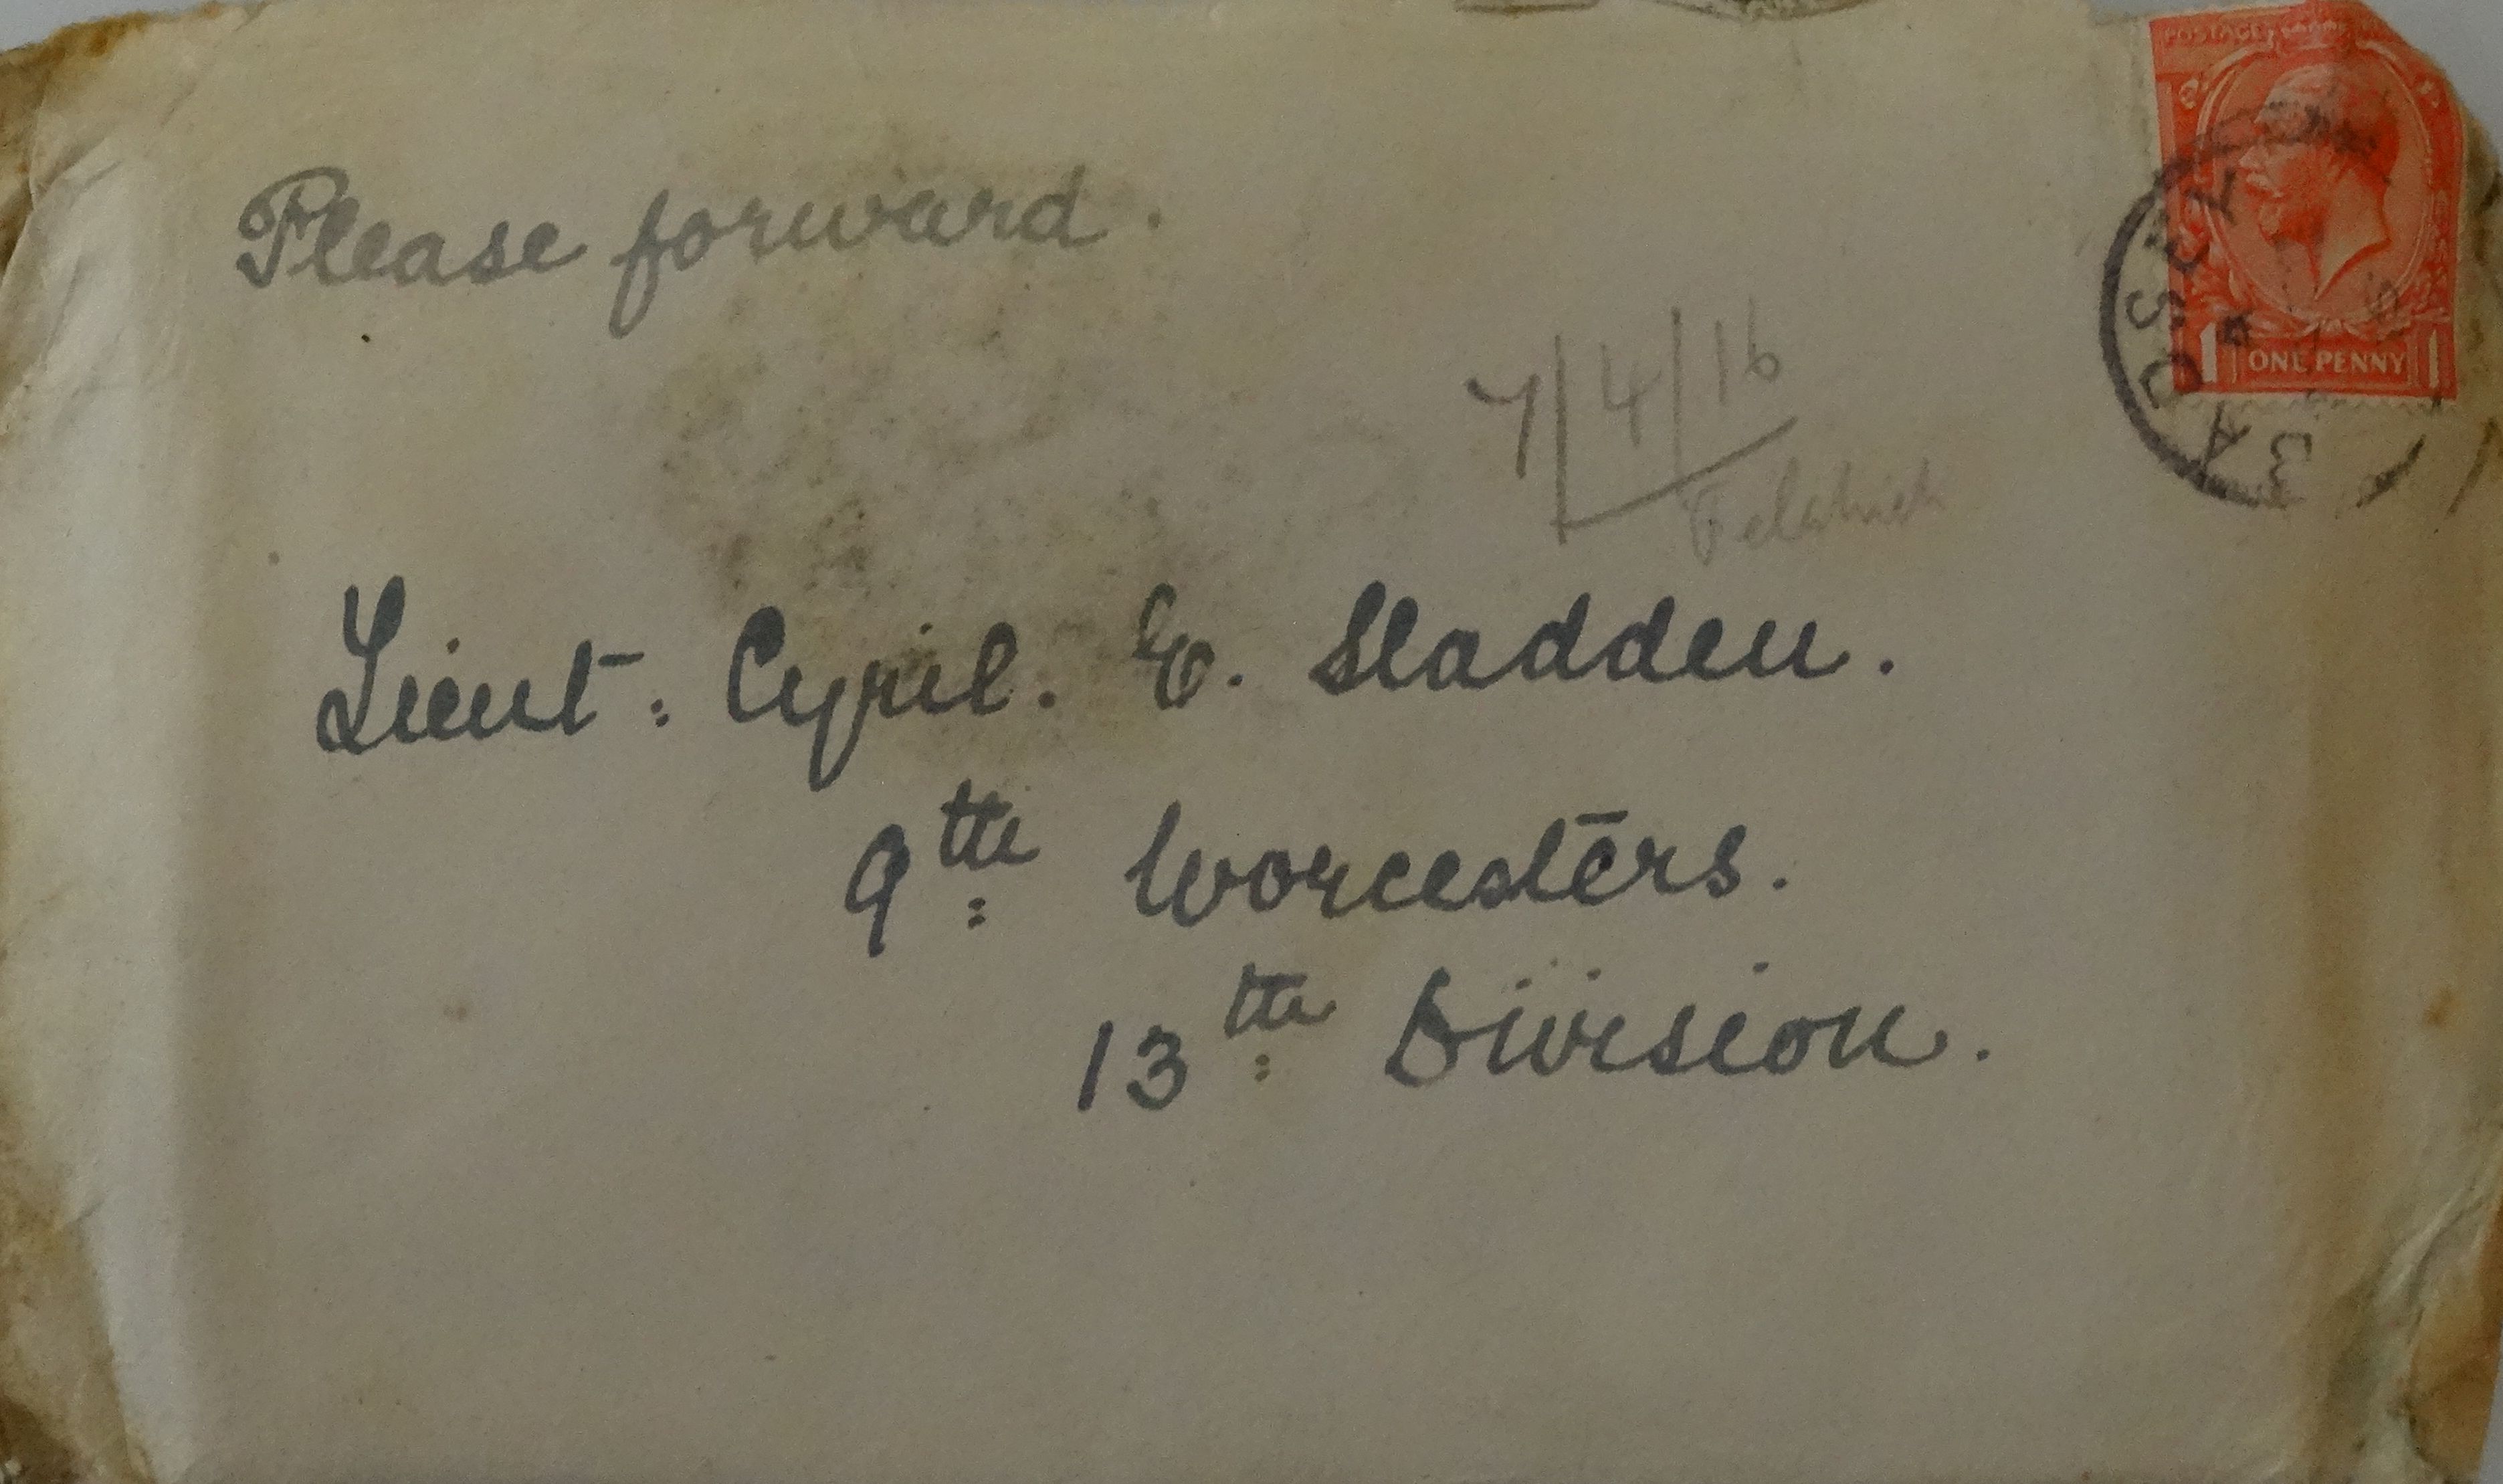 POSTAGE
BADSEY
1 ONE PENNY 1
Please forward.
7/4/16
Lieut: Cyril. E. Sladden.
9th Worcesters.
13th Division.